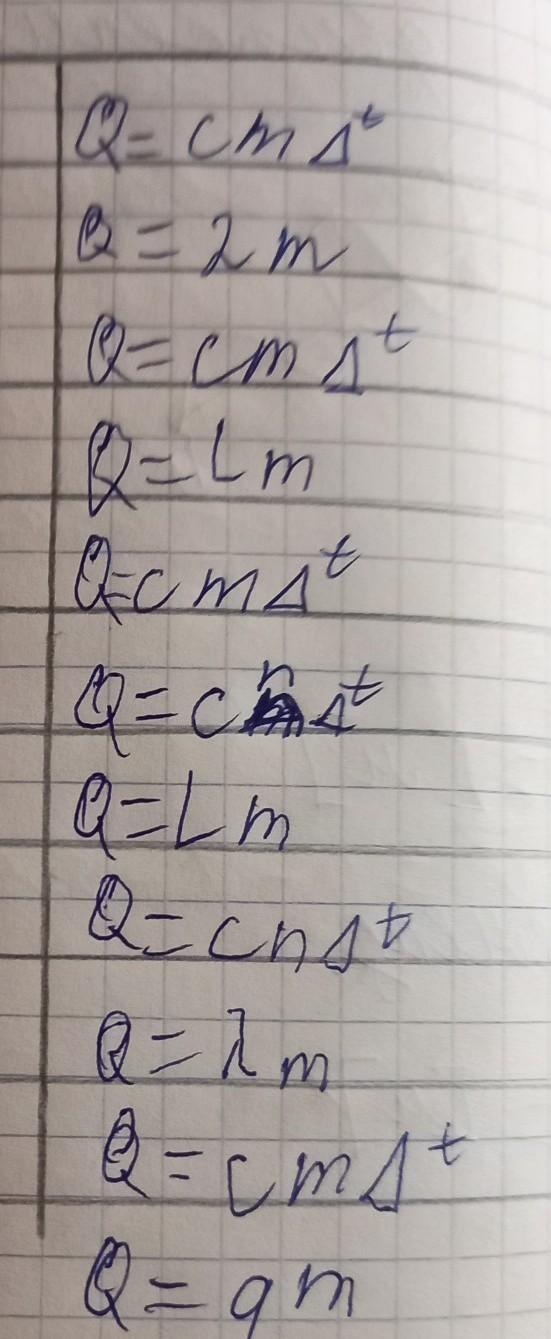 Q = cmΔt
Q = λm
Q = cmΔt
Q = Lm
Q = cmΔt
Q = cnΔt
Q = Lm
Q = cnΔt
Q = λm
Q = cmΔt
Q = qm